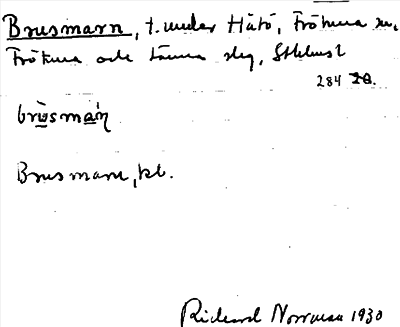 Brusmarn, t. under Håtö, Frötuna sn,
Frötuna och Länna slg, Sthlms l
284 20.
brùsmaɳ
Brusmarn, kb.
Rickard Norrman 1930